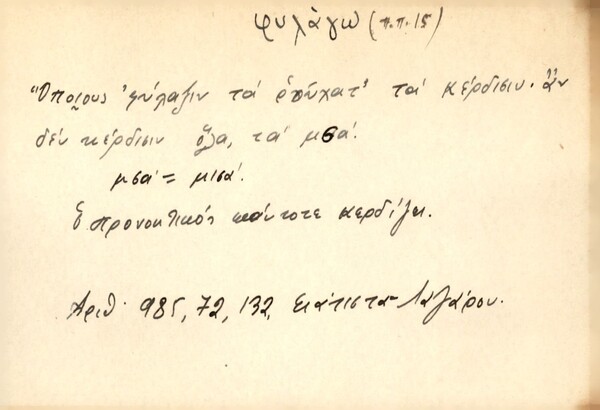 φυλάγω (π.π. 15)
"Όποιους 'φύλαξιν τά ρούχατ' τά κέρδισιν. ἄν
δέν κέρδισιν ὅλα, τά μσά.
μσά = μισά.
Ὁ προνοητικός πάντοτε κερδίζει.
Αριθ. 985, 72, 132, Σιάτιστα - Λαζάρου.